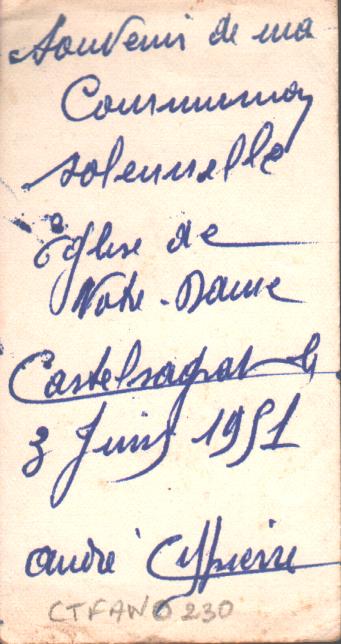 Souvenir de ma
Communion
solennelle
Église de
Notre-Dame
Castelsagrat le
3 Juin 1951
andré
CTFAN0230